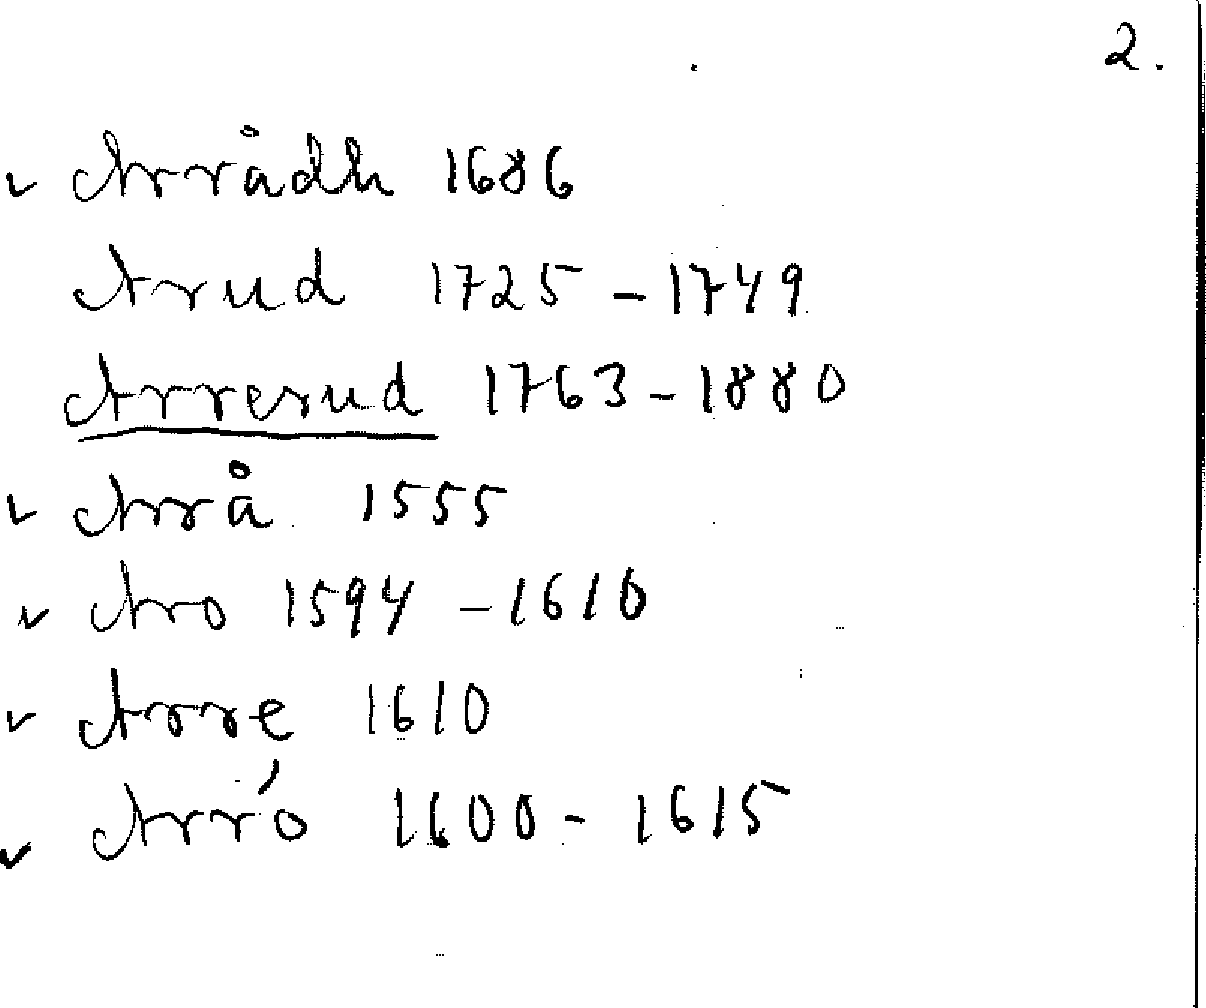 2.
✓ Arrådh 1686
Arud 1725 - 1749
Arresud 1763 - 1880
✓ Arrå 1555
✓ Aro 1594 - 1610
✓ Arre 1610
✓ Arró 1600 - 1615